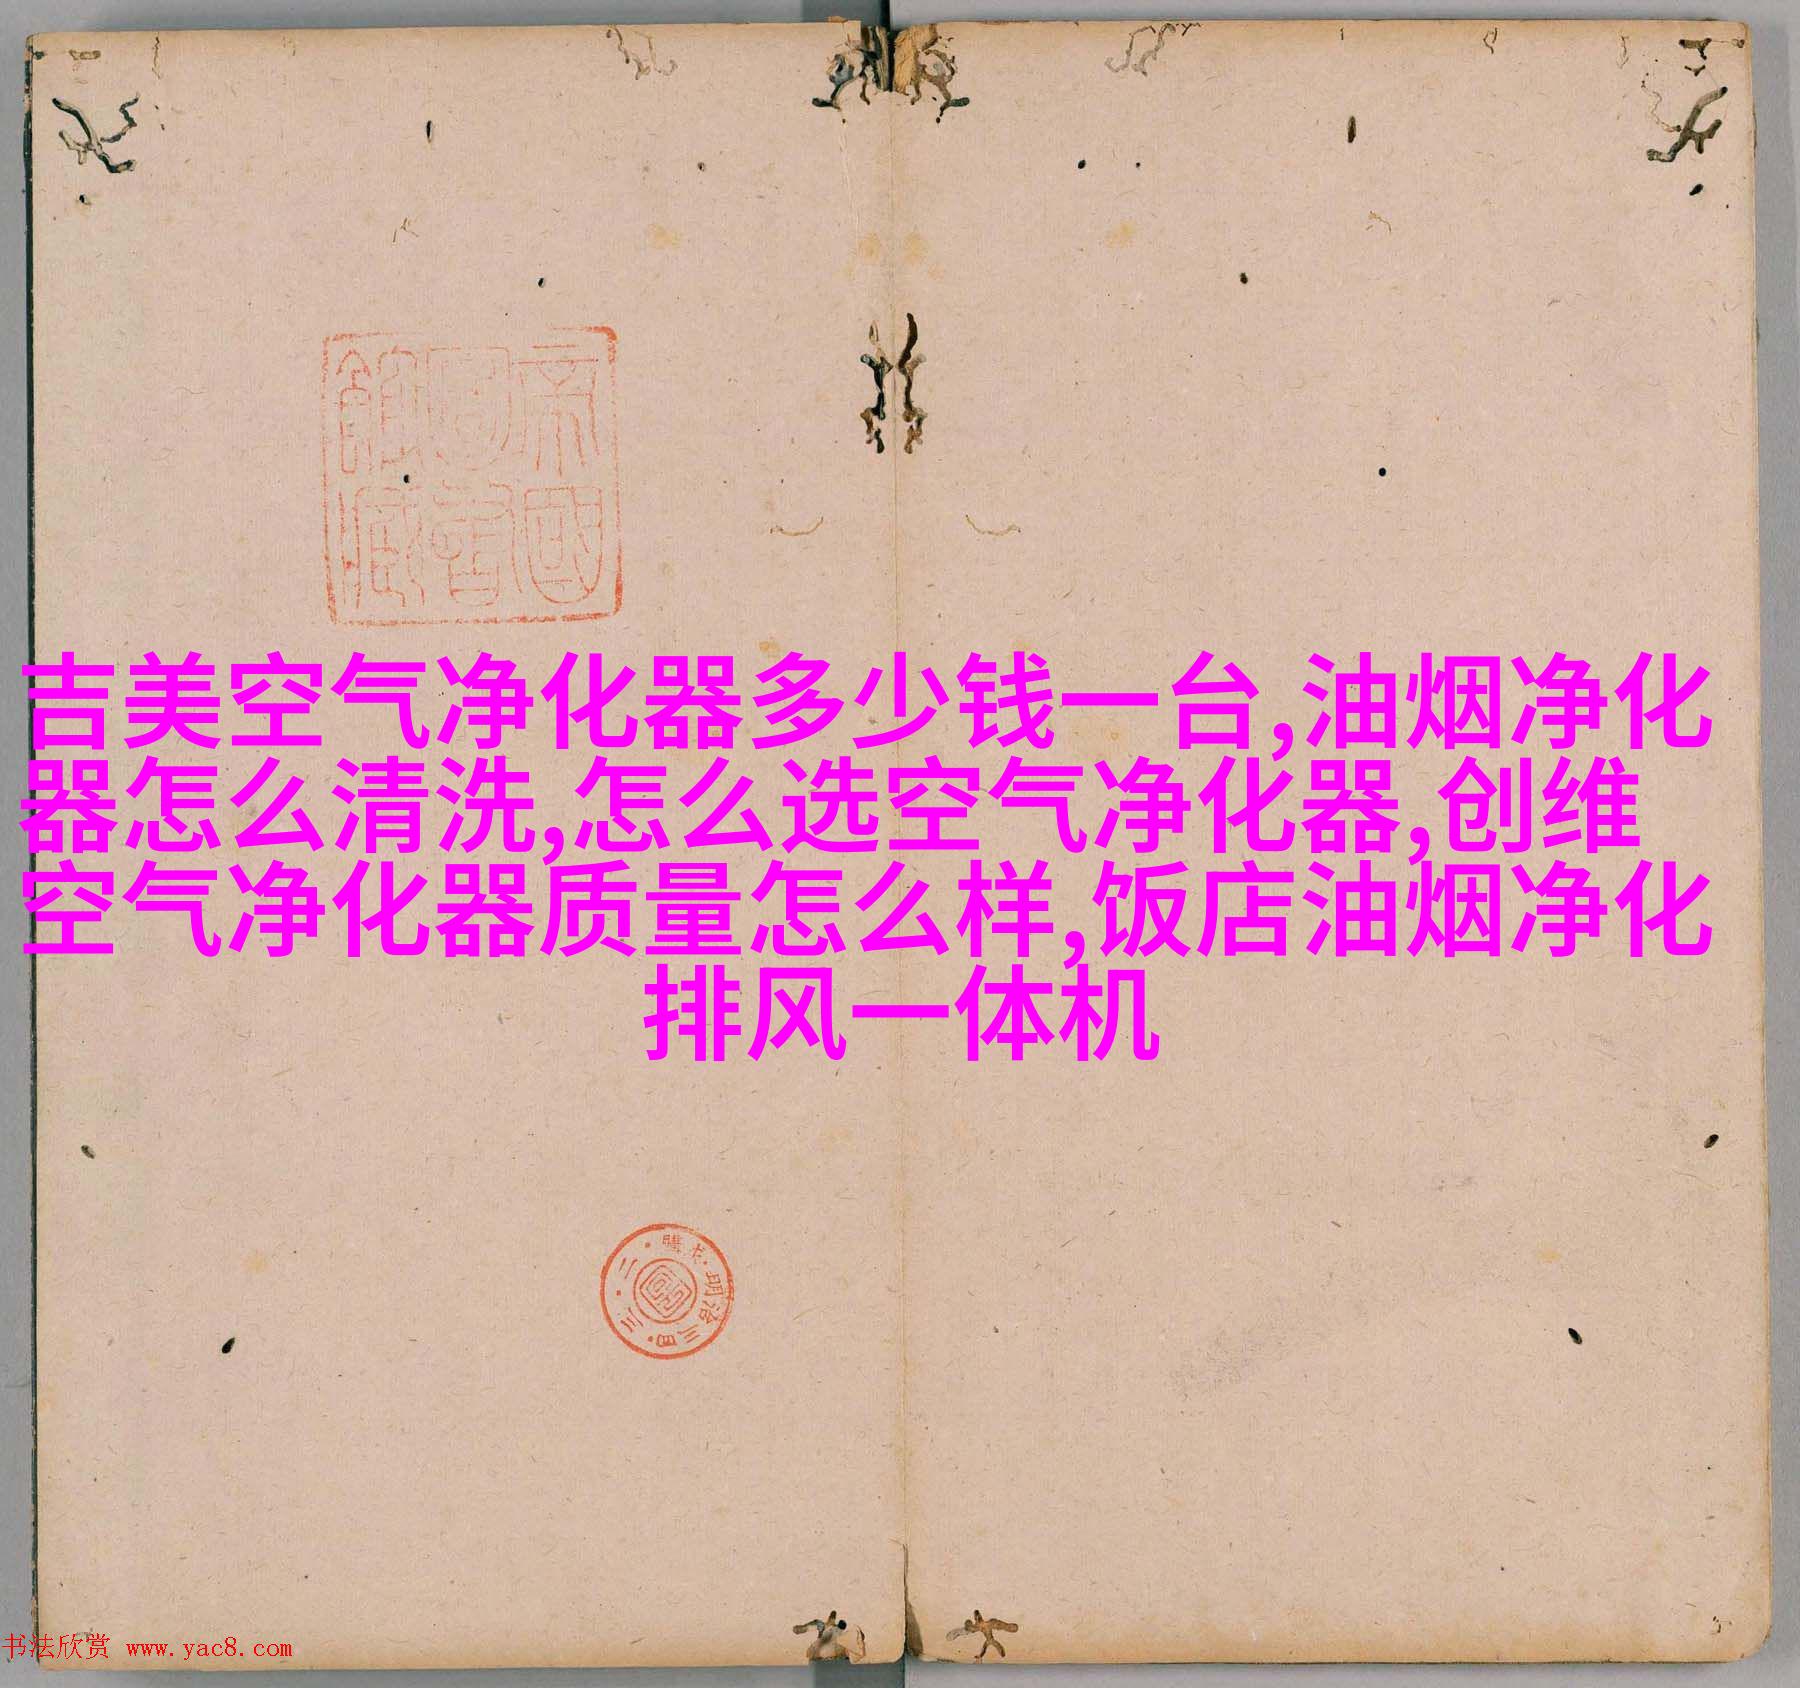 帝國
圖書
館藏
吉美空气净化器多少钱一台,油烟净化
器怎么清洗,怎么选空气净化器,创维
空气净化器质量怎么样,饭店油烟净化
排风一体机
明治三四·三·二·購求·
书法欣赏 www.yac8.com